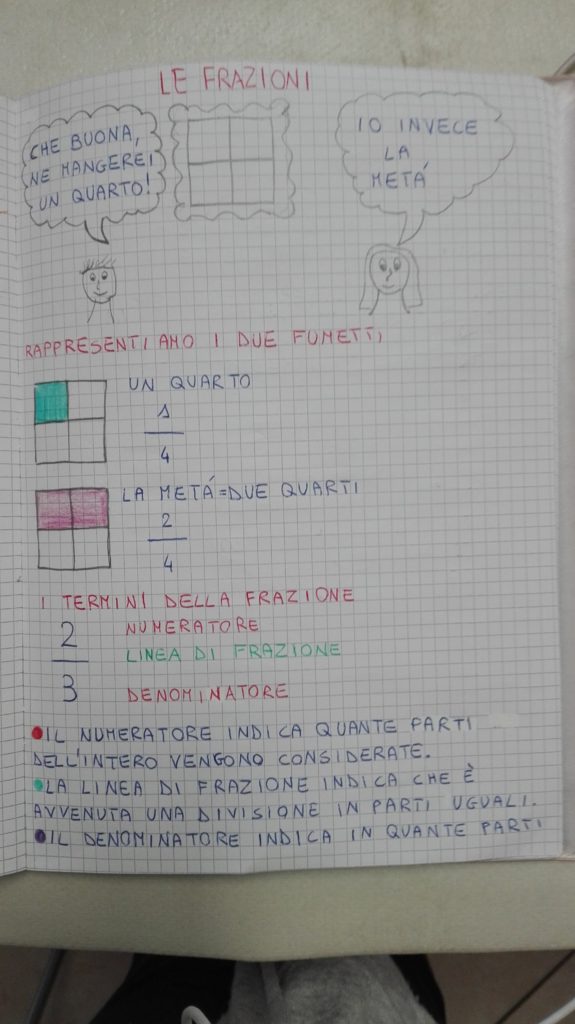 LE FRAZIONI
CHE BUONA,
NE MANGEREI
UN QUARTO!
IO INVECE
LA
METÁ
RAPPRESENTIAMO I DUE FUMETTI
UN QUARTO
1
4
LA METÁ=DUE QUARTI
2
4
I TERMINI DELLA FRAZIONE
2 NUMERATORE
LINEA DI FRAZIONE
3 DENOMINATORE
IL NUMERATORE INDICA QUANTE PARTI
DELL'INTERO VENGONO CONSIDERATE.
LA LINEA DI FRAZIONE INDICA CHE È
AVVENUTA UNA DIVISIONE IN PARTI UGUALI.
IL DENOMINATORE INDICA IN QUANTE PARTI